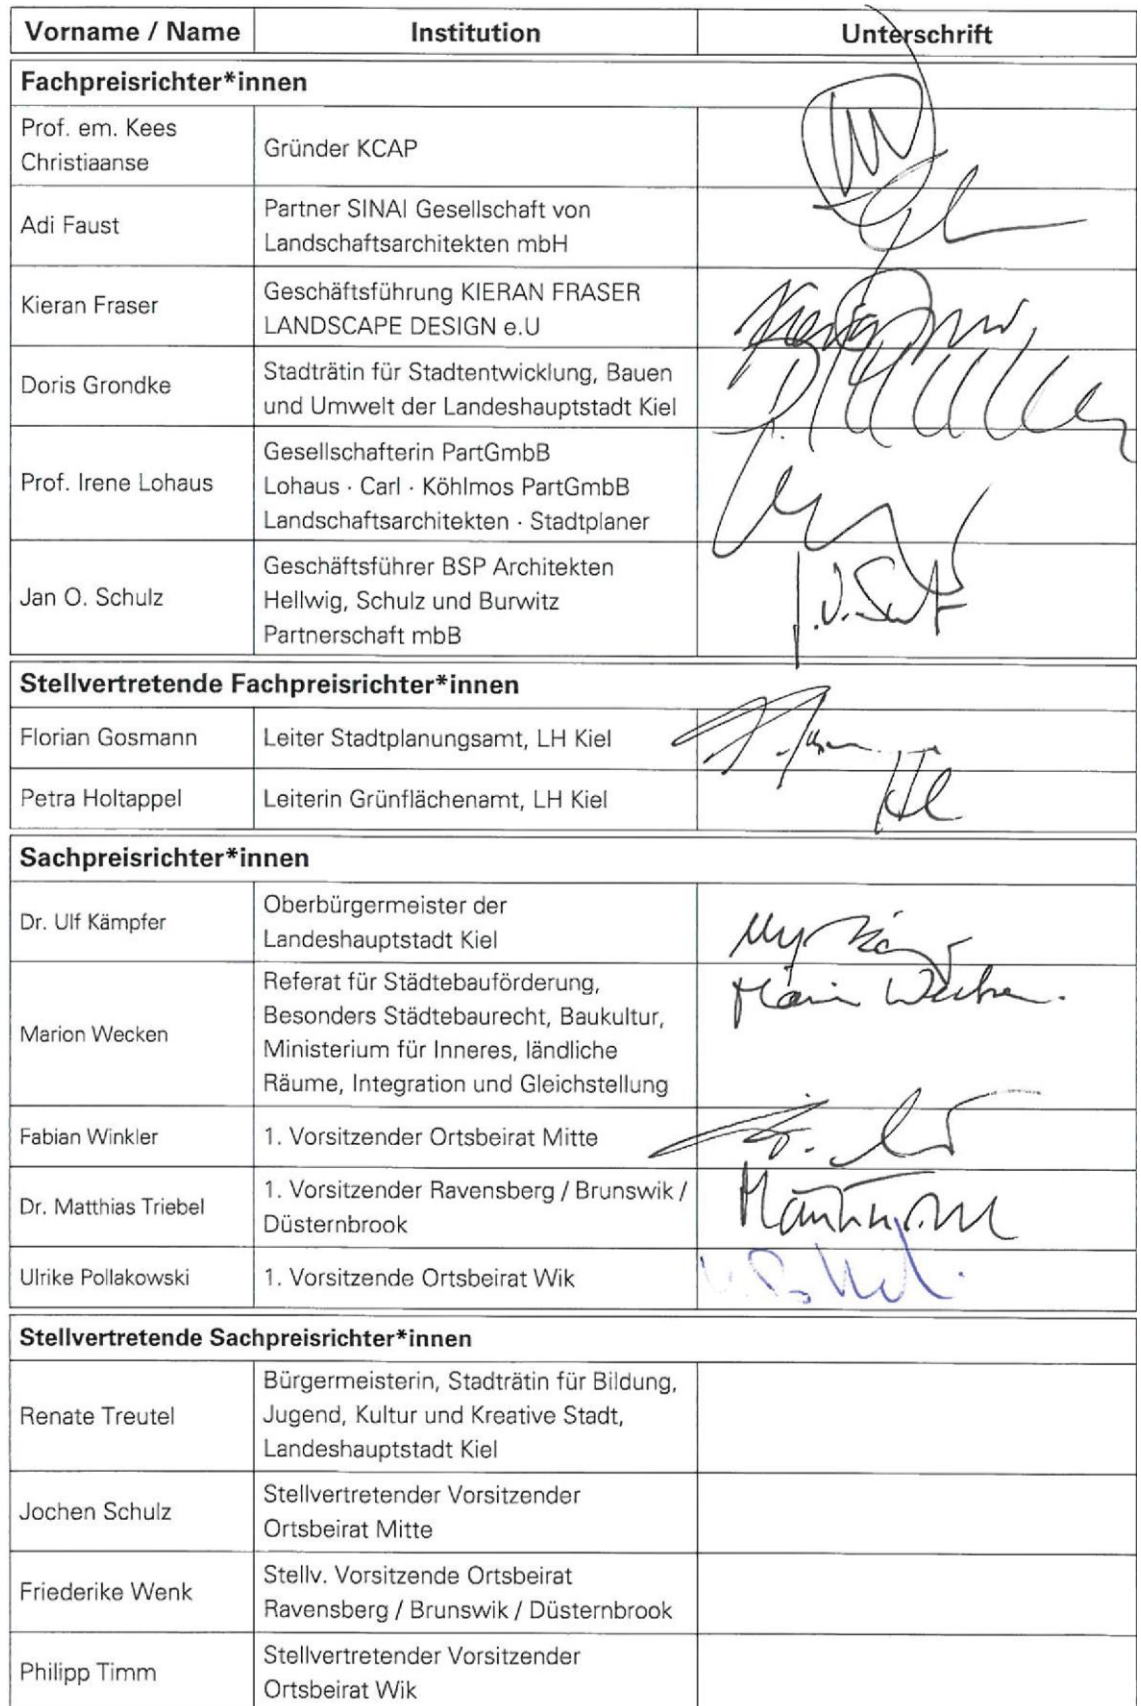 Vorname / Name Institution Unterschrift
Fachpreisrichter*innen
Prof. em. Kees
Christiaanse
Gründer KCAP
Adi Faust
Partner SINAI Gesellschaft von
Landschaftsarchitekten mbH
Kieran Fraser
Geschäftsführung KIERAN FRASER
LANDSCAPE DESIGN e.U
Doris Grondke
Stadträtin für Stadtentwicklung, Bauen
und Umwelt der Landeshauptstadt Kiel
Prof. Irene Lohaus
Gesellschafterin PartGmbB
Lohaus · Carl · Köhlmos PartGmbB
Landschaftsarchitekten · Stadtplaner
Jan O. Schulz
Geschäftsführer BSP Architekten
Hellwig, Schulz und Burwitz
Partnerschaft mbB
Stellvertretende Fachpreisrichter*innen
Florian Gosmann
Leiter Stadtplanungsamt, LH Kiel
Petra Holtappel
Leiterin Grünflächenamt, LH Kiel
Sachpreisrichter*innen
Dr. Ulf Kämpfer
Oberbürgermeister der
Landeshauptstadt Kiel
Marion Wecken
Referat für Städtebauförderung,
Besonders Städtebaurecht, Baukultur,
Ministerium für Inneres, ländliche
Räume, Integration und Gleichstellung
Fabian Winkler
1. Vorsitzender Ortsbeirat Mitte
Dr. Matthias Triebel
1. Vorsitzender Ravensberg / Brunswik /
Düsternbrook
Ulrike Pollakowski
1. Vorsitzende Ortsbeirat Wik
Stellvertretende Sachpreisrichter*innen
Renate Treutel
Bürgermeisterin, Stadträtin für Bildung,
Jugend, Kultur und Kreative Stadt,
Landeshauptstadt Kiel
Jochen Schulz
Stellvertretender Vorsitzender
Ortsbeirat Mitte
Friederike Wenk
Stellv. Vorsitzende Ortsbeirat
Ravensberg / Brunswik / Düsternbrook
Philipp Timm
Stellvertretender Vorsitzender
Ortsbeirat Wik